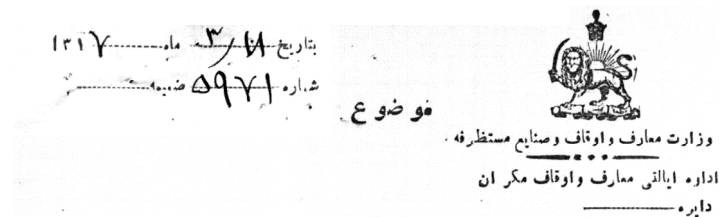 بتاریخ ۱۸/۳ ماه ۱۳۱۷
شماره ۵۹۷۱ ضمیمه
موضوع
وزارت معارف و اوقاف و صنایع مستظرفه
اداره ایالتی معارف و اوقاف مکران
دایره